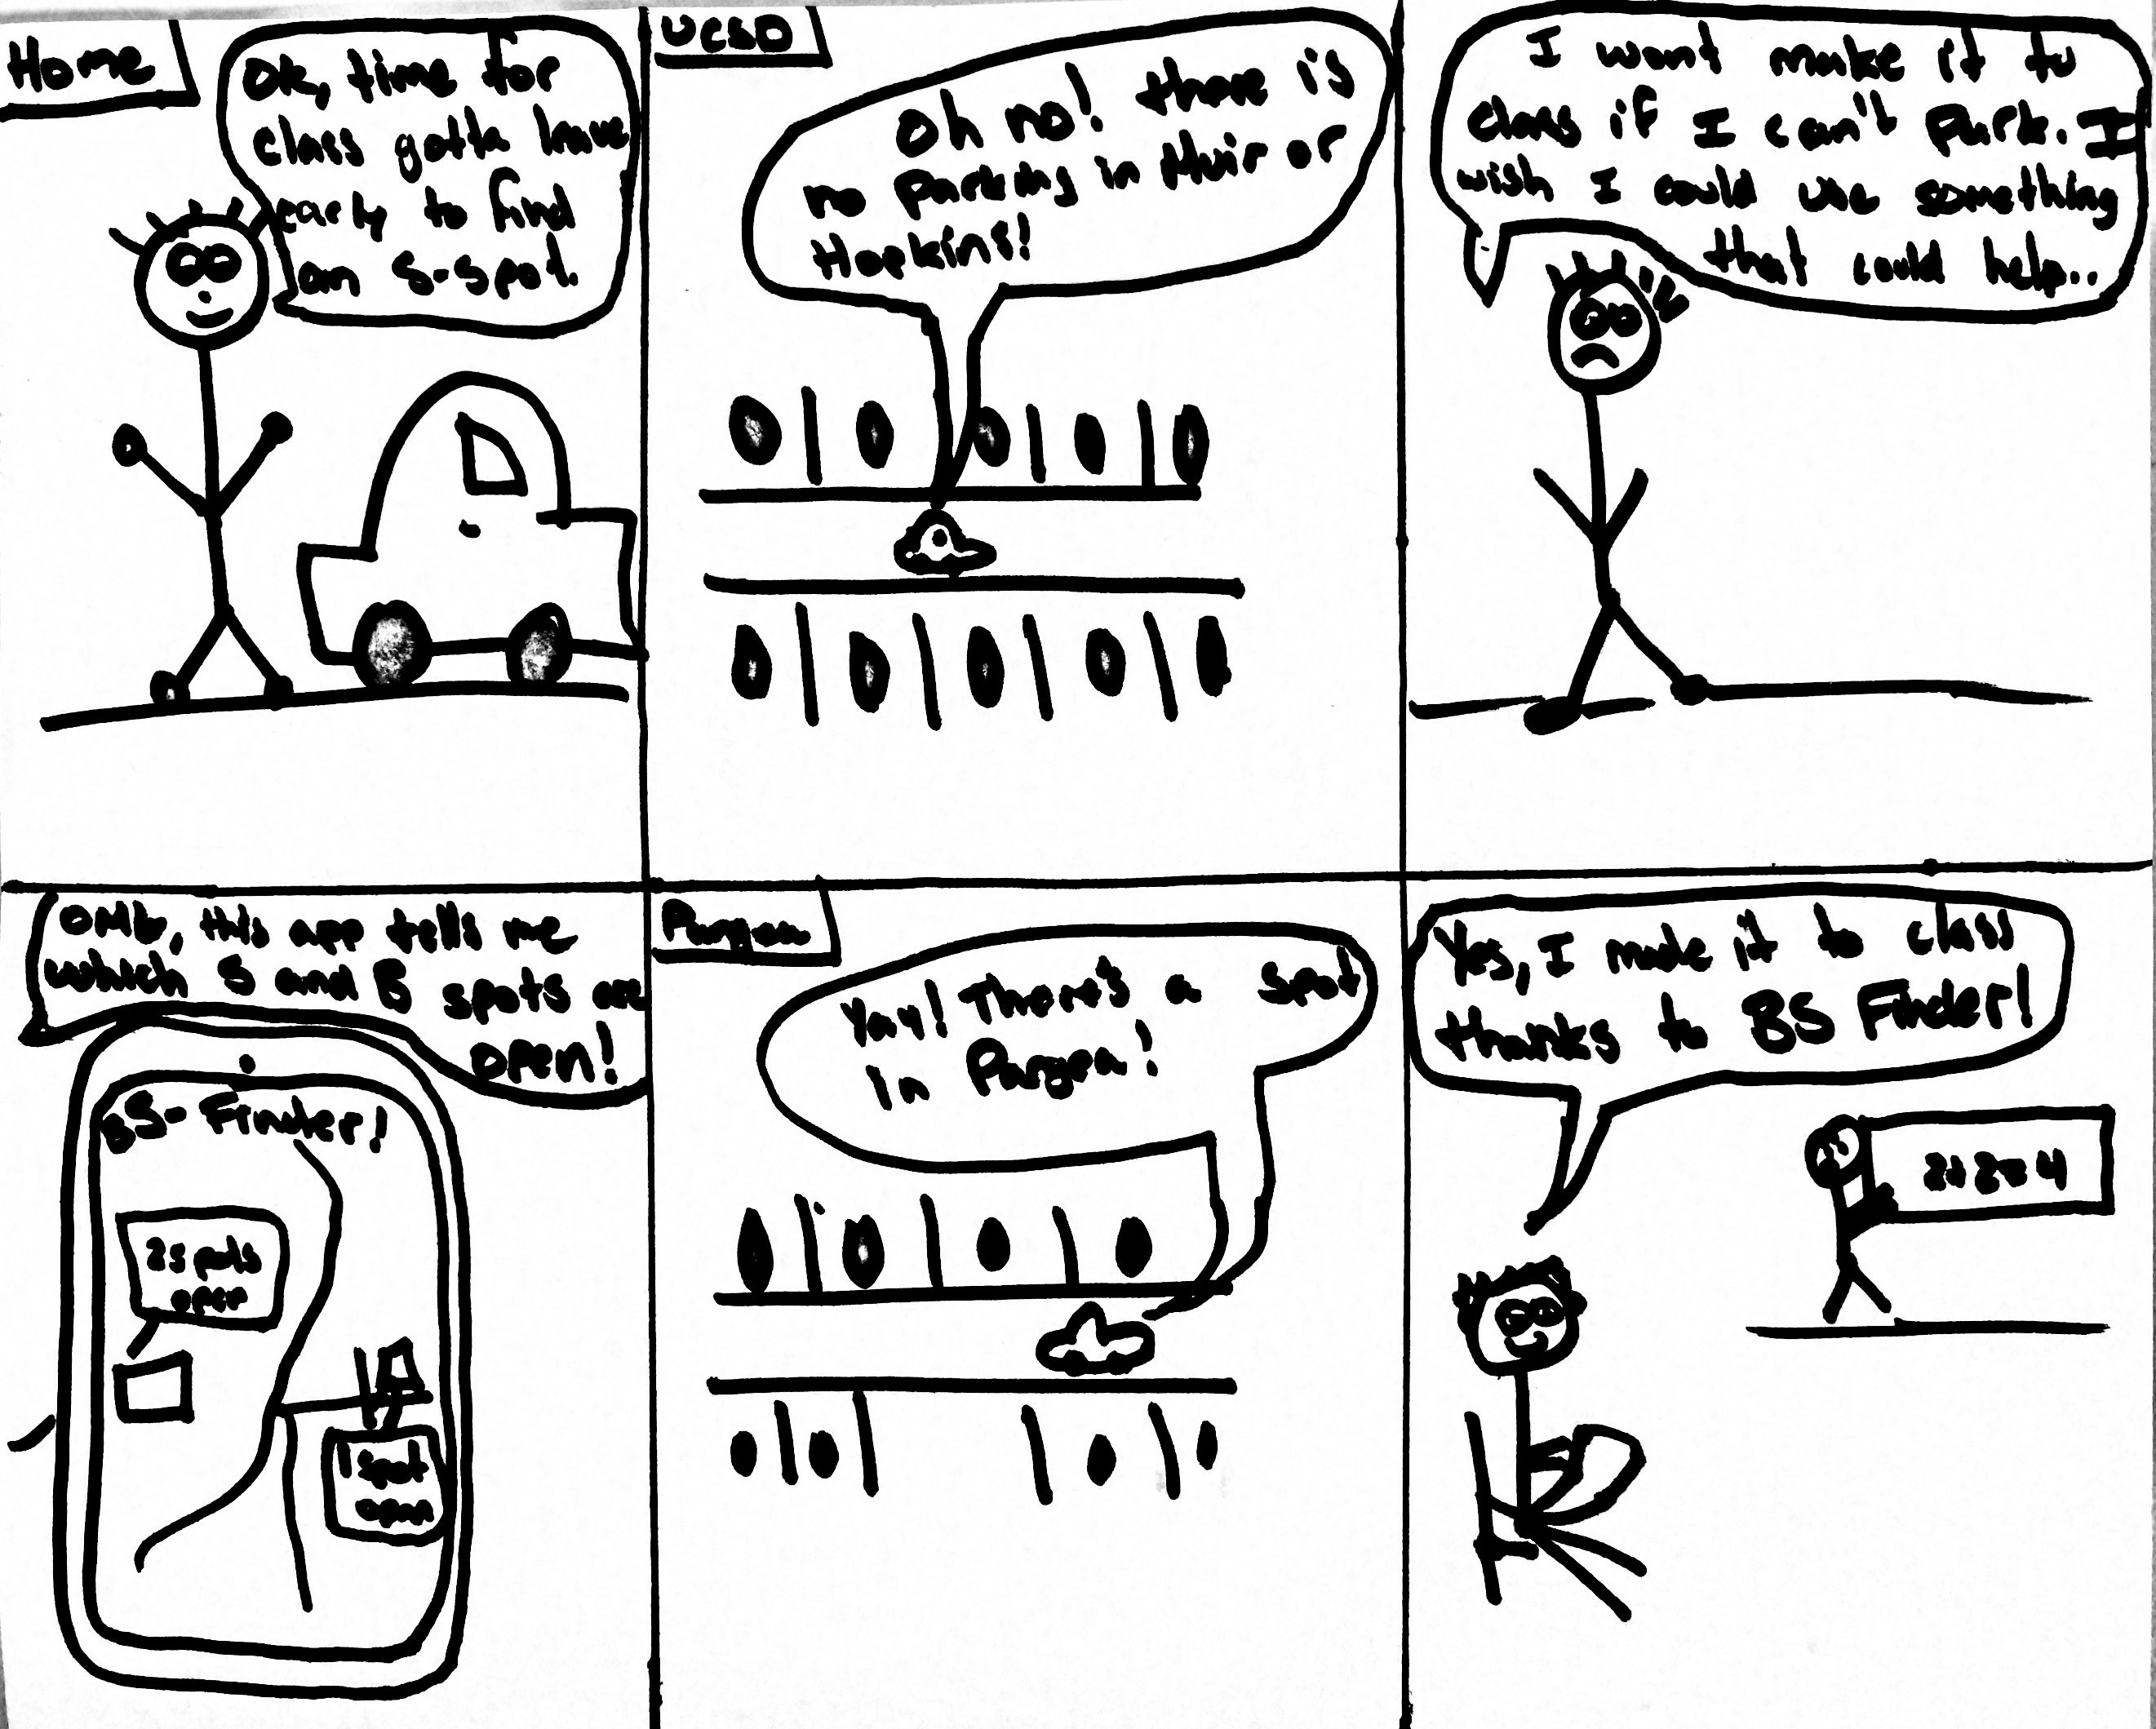 Home
Ok, time for
class gotta leave
early to find
an S-spot.
UCSD
Oh no! there is
no parking in Muir or
Hopkins!
I wont make it to
class if I can't Park. I
wish I could use something
that could help..
OMG, this app tells me
which S and B spots are
open!
BS-Finder!
2 spots
open
1 spot
open
Pangea
Yay! There's a spot
in Pangea!
Yes, I made it to class
thanks to BS Finder!
2+2=4